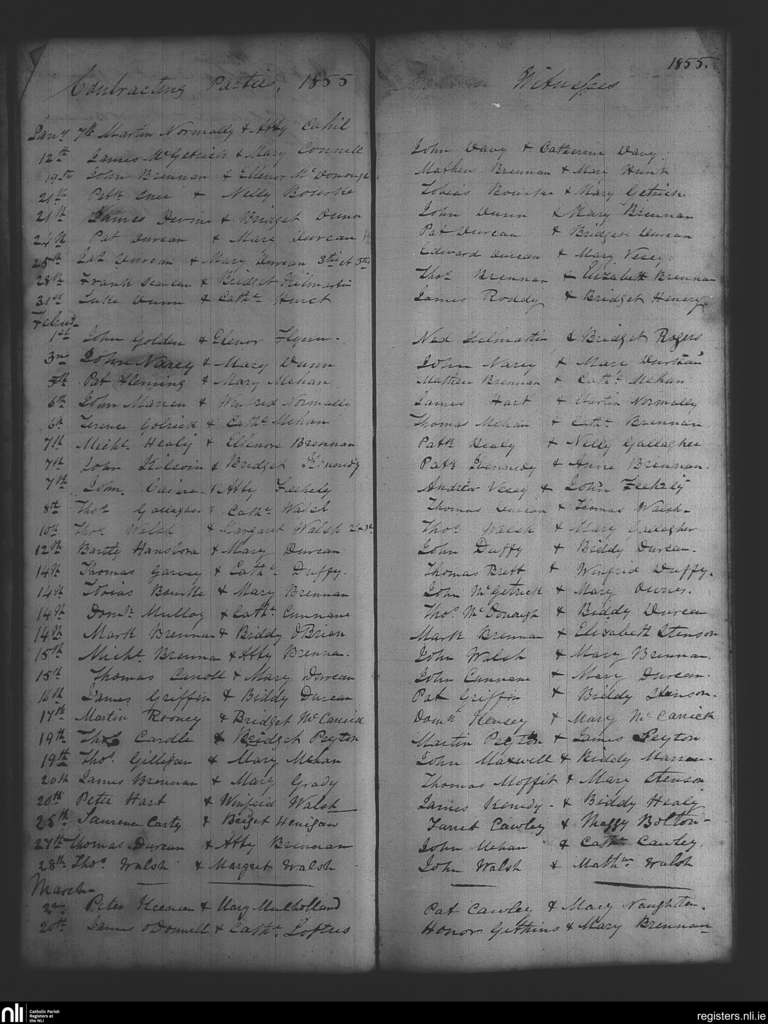 Contracting Parties, 1855
Jany 7th Martin Normally & Abby Cahil
12th James McGetrick & Mary Connell
19th John Brennan & Ellenor McDonough
21st Patk & Nelly Bourke
21st James Devine & Bridget Dunn
24th Pat Durcan & Mary Durcan
25th Durcan & Mary Durcan 3rd et 3rd
28th Frank & Bridget Kilmartin
31st Luke Dunn & Cathe Hurst
Febry
1st John Golden & Elenor Flynn
3rd John Narey & Mary Dunn
5th Pat Fleming & Mary Mehan
6th John Marren & Winfred Normally
6th Terence Getrick & Cathe Mehan
7th Michl Healy & Ellenor Brennan
7th John Kilcoin & Bridget Kennedy
7th John & Abby Feehely
8th Thos Gallagher & Cathe Walsh
10th Thos Walsh & Margaret Walsh
12th Bartly Hanslora & Mary Durcan
14th Thomas Garvey & Cathe Duffy
14th Tobias & Mary Brennan
14th Domk Mulloy & Cathe Cunnane
14th Mark Brennan & Biddy O'Brien
15th Michl Brennan & Abby Brennan
15th Thomas & Mary Durcan
16th James Griffin & Biddy Durcan
17th Martin Rooney & Bridget McCarrick
19th Thos & Bridget Peyton
19th Thos Gilligan & Mary Mehan
20th James Brennan & Mary Grady
20th Peter Hart & Winfrid Walsh
25th Laurence Carty & Briget Henigan
27th Thomas Durcan & Abby Brennan
28th Thos Walsh & Margret Walsh
March
2nd Peter & Mary Mulholland
20th James O'Donnell & Cathe Loftus
1855.
Witnesses
John Davy & Catherine Davy
Mathew Brennan & Mary Hunt
Tobias Bourke & Mary Getrick
John Dunn & Mary Brennan
Pat Durcan & Bridget Durcan
Edward Durcan & Mary Vesey
Thos Brennan & Elizabeth Brennan
James Roddy & Bridget Henery
Ned Kilmartin & Bridget Rogers
John Narey & Mary Durcan
Mathew Brennan & Cathe Mehan
James Hart & Martin Normally
Thomas Mehan & Cathe Brennan
Patk Healy & Nelly Gallagher
Patk Kennedy & Anne Brennan
Andrew Vesey & John Feehely
Thomas Durcan & Thomas Walsh
Thos Walsh & Mary Gallagher
John Duffy & Biddy Durcan
Thomas Brett & Winfrid Duffy
John McGetrick & Mary
Thos McDonaugh & Biddy Durcan
Mark Brennan & Elizabeth Stenson
John Walsh & Mary Brennan
John Cunnane & Mary Durcan
Pat Griffin & Biddy Stenson
Domk Hensey & Mary McCarrick
Martin Peyton & James Peyton
John Maxwell & Biddy Marren
Thomas Moffit & Mary Stenson
James & Biddy Healy
Farrel Cawley & Maggy Bolton
John Mehan & Cathe Cawley
John Walsh & Mathw Walsh
Pat Cawlee & Mary Naughten
Honor Gethins & Mary Brennan
nli
Catholic Parish
Registers at
the NLI
registers.nli.ie